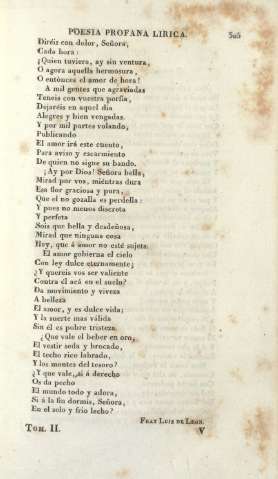 POESIA PROFANA LIRICA. 305
Diréis con dolor, Señora,
Cada hora:
¿Quien tuviera, ay sin ventura,
O agora aquella hermosura,
O entónces el amor de hora!
A mil gentes que agraviadas
Teneis con vuestra porfía,
Dejaréis en aquel dia
Alegres y bien vengadas.
Y por mil partes volando,
Publicando
El amor irá este cuento,
Para aviso y escarmiento
De quien no sigue su bando.
¡Ay por Dios! Señora bella,
Mirad por vos, miéntras dura
Esa flor graciosa y pura,
Que el no gozalla es perdella:
Y pues no menos discreta
Y perfeta
Sois que bella y desdeñosa,
Mirad que ninguna cosa
Hoy, que á amor no esté sujeta.
El amor gobierna el cielo
Con ley dulce eternamente;
¿Y quereis vos ser valiente
Contra él acá en el suelo?
Da movimiento y viveza
A belleza
El amor, y es dulce vida;
Y la suerte mas válida
Sin él es pobre tristeza.
¿Que vale el beber en oro,
El vestir seda y brocado,
El techo rico labrado,
Y los montes del tesoro?
¿Y que vale, si á derecho
Os da pecho
El mundo todo y adora,
Si á la fin dormís, Señora,
En el solo y frio lecho?
FRAY LUIS DE LEON.
TOM. II. V